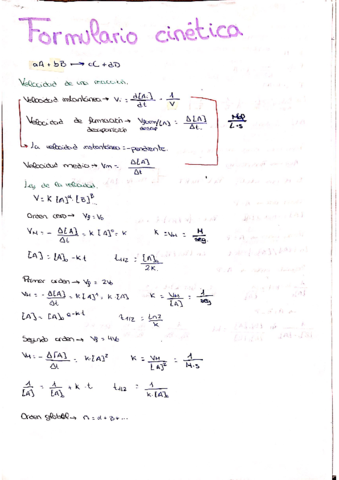 Formulario cinética
aA + bB → cC + dD
Velocidad de una reacción.
Velocidad instantánea → V = d[A] / dt · 1/V
Velocidad de formación → V form/[A] = Δ[A] / Δt Mol / L·s
desaparición desap
→ La velocidad instantánea = -pendiente.
Velocidad media → Vm = Δ[A] / Δt
Ley de la velocidad.
V = K [A]^α · [B]^β
Orden cero → Vf = V0
VM = - Δ[A] / Δt = k [A]^0 = k K = VM = M / seg
[A] = [A]0 - k·t t1/2 = [A]0 / 2k
Primer orden → Vf = 2V0
VM = - Δ[A] / Δt = k[A]^1 = k·[A] K = VM / [A] = 1 / seg
[A] = [A]0 e^-k·t t1/2 = Ln2 / k
Segundo orden → Vf = 4V0
VM = - Δ[A] / Δt = k·[A]^2 K = VM / [A]^2 = 1 / M·s
1 / [A] = 1 / [A]0 + k·t t1/2 = 1 / k·[A]0
Orden global → n = α + β + ...